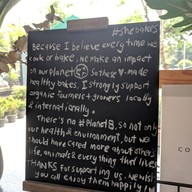 #shebakes
Because I believe every time we
cook or bake, we make an impact
on our planet. So these ♥-made
healthy bakes, I strongly support
organic farmers + growers locally
& internationally.
There's no #planetB, so not only
our health & environment, but we
should have cared more about others'
life, animals & every thing that lives
THANKS for supporting us, we wish
you all enjoy them happily!
CO